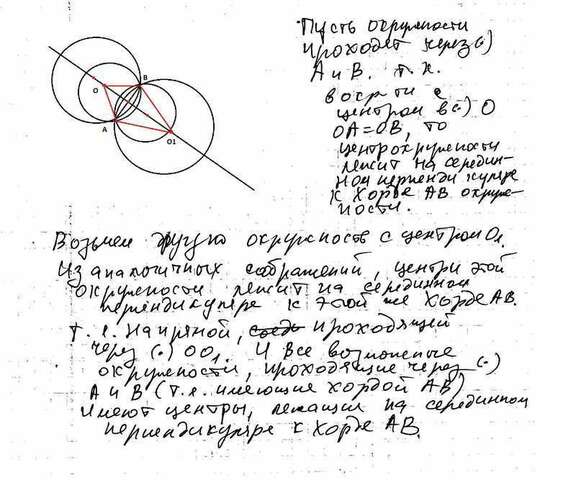 O
B
A
O1
Пусть окружности
проходят через (·)
А и В. т.к.
в окр-ти с
центром в (·) О
ОА=ОВ, то
центр окружности
лежит на середин-
ном перпендикуляре
к хорде АВ окруж-
ности.
Возьмем другую окружность с центром О₁.
Из аналогичных соображений, центр этой
окружности лежит на серединном
перпендикуляре к этой же хорде АВ.
т.е. на прямой, проходящей
через (·) ОО₁. И все возможные
окружности, проходящие через (·)
А и В (т.е. имеющие хордой АВ)
имеют центры, лежащие на серединном
перпендикуляре к хорде АВ.